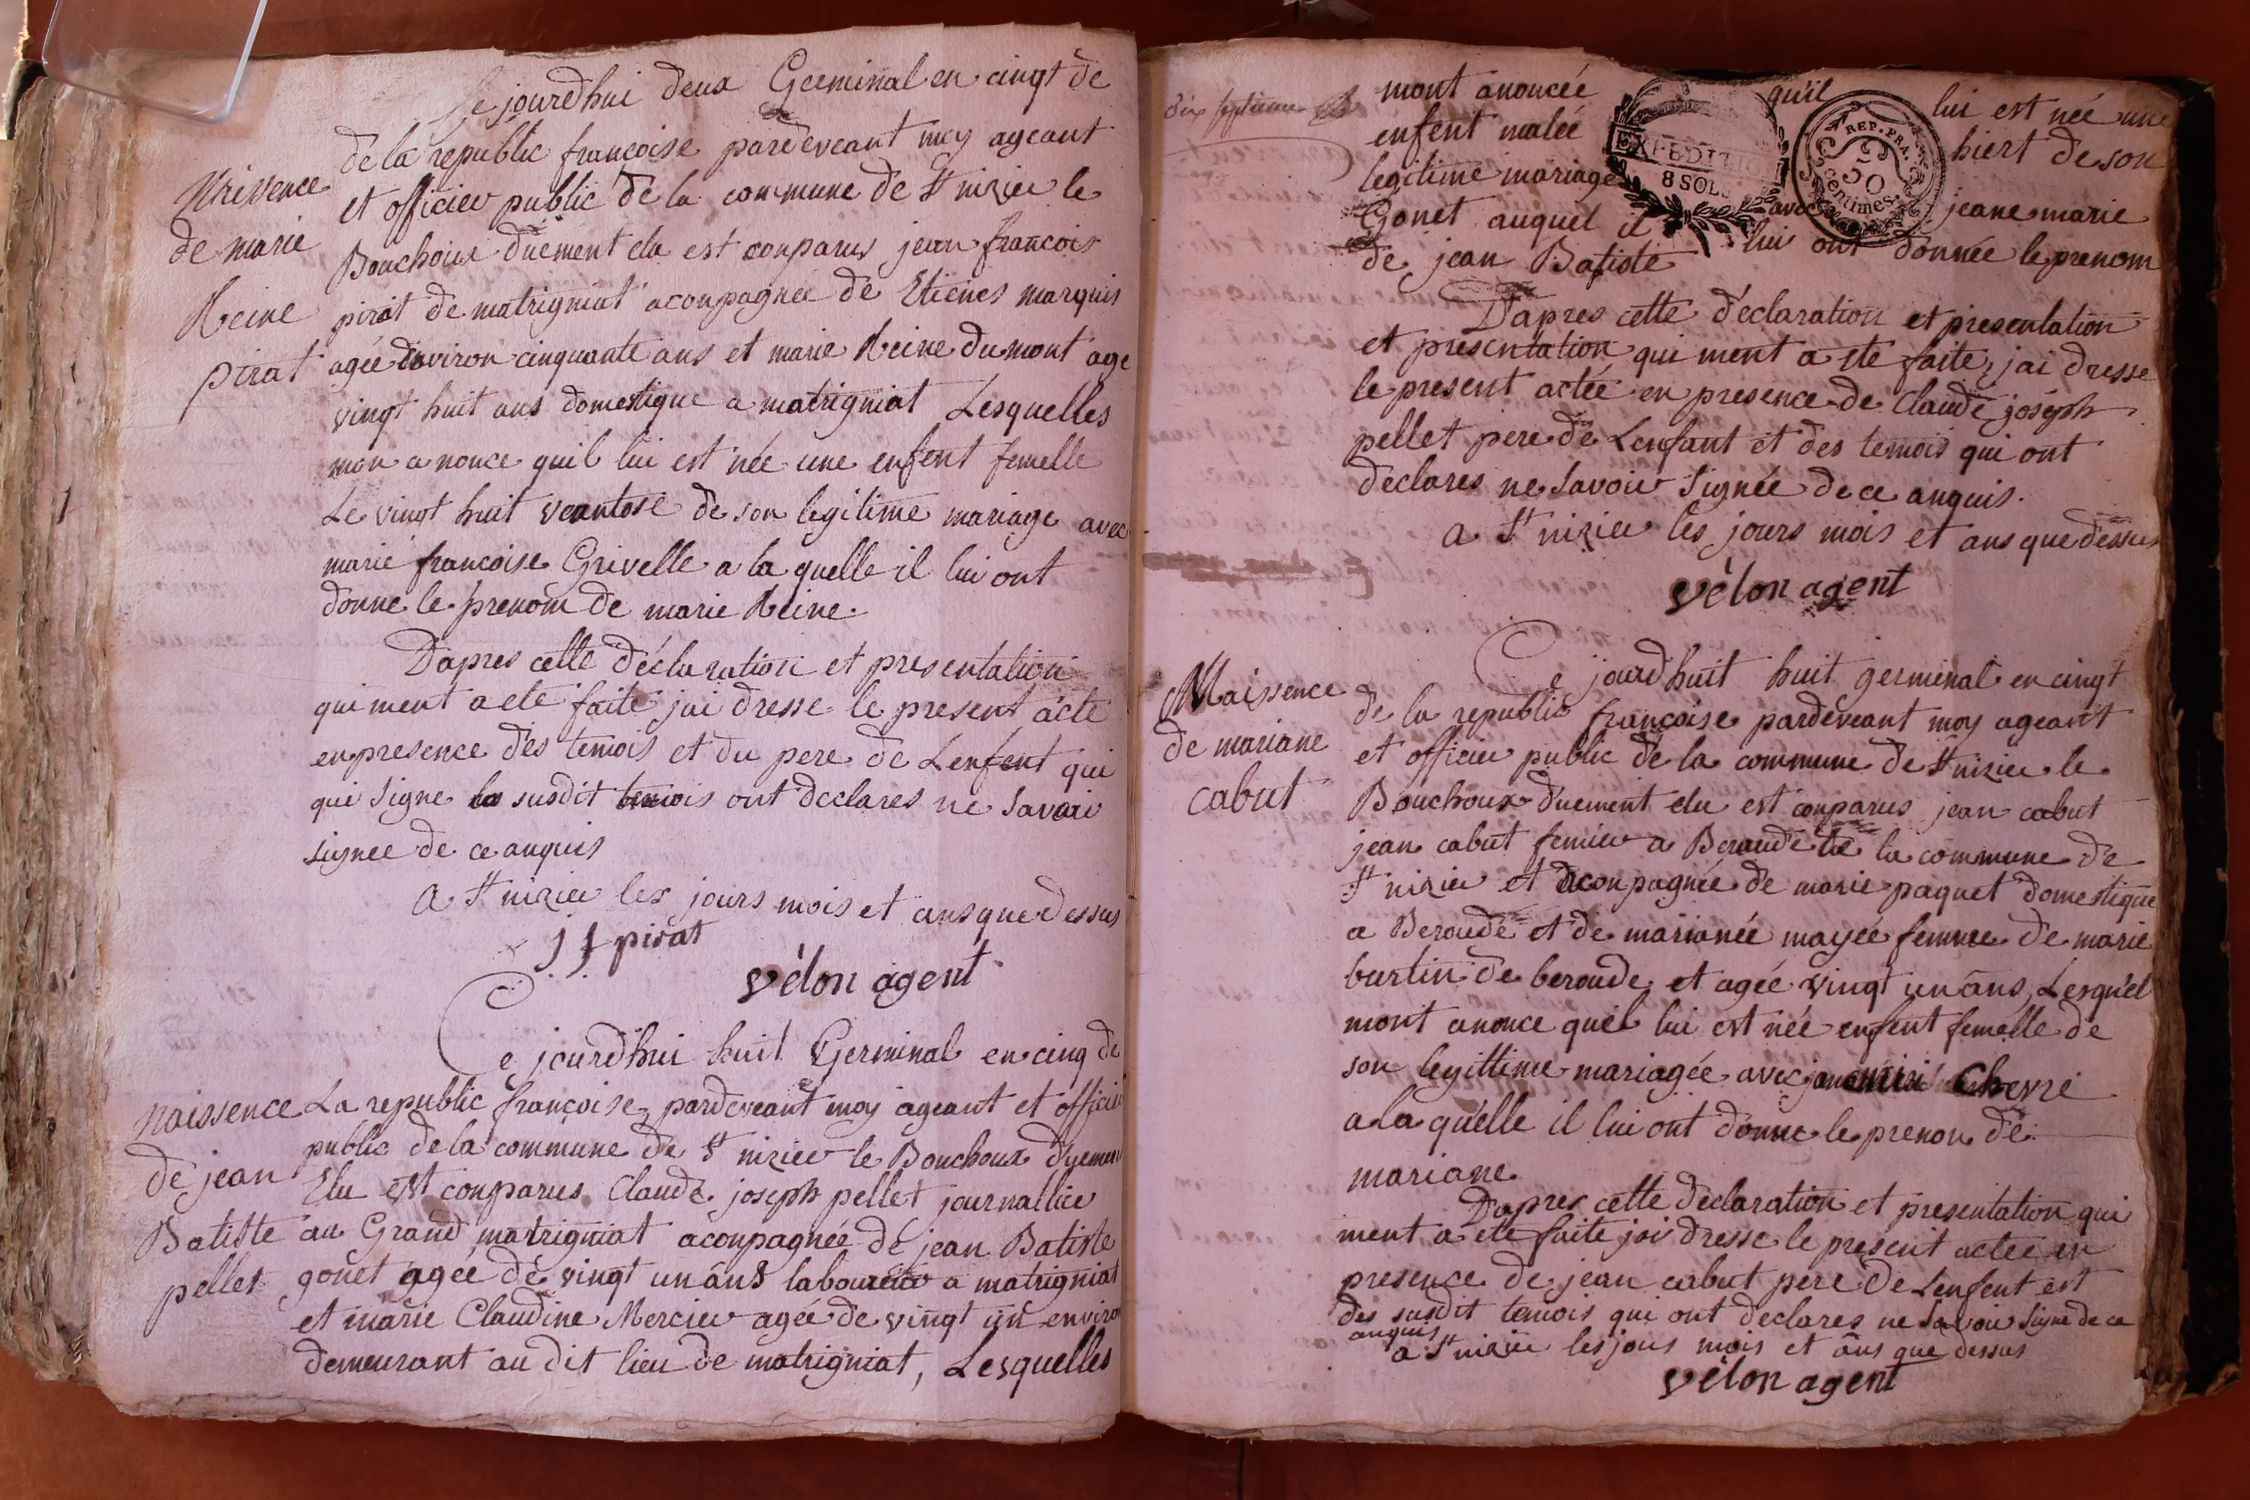 Ce jourdhui deux Germinal en cinqt de
de la republic françoise pardeveant moy ageant
et officier public de la commune de St nizier le
Bouchoux duement elu est conparus jean francois
pirat de matrigniat aconpagnée de Etienes marquis
agée denviron cinquante ans et marie Reine dumont age
vingt huit ans domestique a matrigniat Lesquelles
mon anonce quil lui est née une enfent femelle
Le vingt huit veantose de son legitime mariage avec
marie francoise Grivelle a la quelle il lui ont
donne le prenom de marie Reine.
Naissence
de marie
Reine
pirat
Dapres cette déclaration et presentation
qui ment a ete faite jai dresse le present acte
en presence des temois et du pere de Lenfent qui
qui signe les susdit temois ont declares ne savoir
signee de ce anquis
a St nizier les jours mois et ans que dessus
j f pirat
vélon agent
Ce jourdhui huit Germinal en cinq de
La republic françoise pardeveant moy ageant et officier
public de la commune de St nizier le Bouchoux duement
Elu est conparus Claude joseph pellet journallier
au Grand matrigniat aconpagnée de jean Batiste
gonet agee de vingt un ans laboureur a matrigniat
et marie Claudine Mercier agée de vingt un environ
demeurant au dit lieu de matrigniat, Lesquelles
naissence
de jean
Batiste
pellet
dix septieme
mont anoncée quil lui est née une
enfent malée hiert de son
legitime mariage avec jeane marie
Gonet auquel il lui ont donnée le prenom
de jean Batiste
EXPEDITION
8 SOLS
REP. FRA.
50
centimes
Dapres cette déclaration et presentation
et presentation qui ment a ete faite, jai dresse
le present actée en presence de Claude joseph
pellet pere de Lenfant et des temois qui ont
declares ne savoir signée de ce anquis.
a St nizier les jours mois et ans que dessus
vélon agent
Ce jourdhuit huit germinal en cinqt
de la republic françoise pardeveant moy ageant
et officier public de la commune de St nizier le
Bouchoux duement elu est conparus jean cabut
jean cabut femier a Beroude de la commune de
St nizier et aconpagnée de marie paquet domestique
a Beroude et de marianée mayée femme de marie
burtin de beroude et agée vingt un ans, Lesquel
mont anonce quel lui est née enfent femelle de
son legittime mariagée avec Chevre
a la quelle il lui ont donne le prenon de
mariane
Naissence
de mariane
cabut
Dapres cette declaration et presentation qui
ment a ete faite jois dresse le present actee en
presence de jean cabut pere de Lenfent est
des susdit temois qui ont declares ne savoir signe de ce
anquis
a St nizier les jours mois et ans que dessus
vélon agent